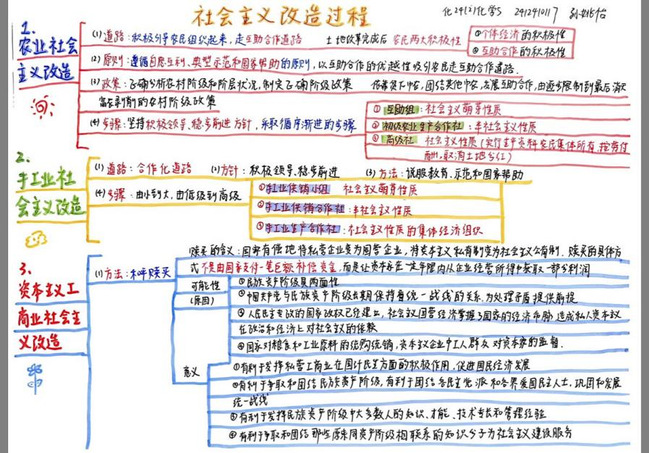 社会主义改造过程
化24(2)化学S 241241011
1.农业社会主义改造
(1)道路:积极引导农民组织起来,走互助合作道路 土地改革完成后 农民两大积极性
①个体经济的积极性
②互助合作的积极性
(2)原则:遵循自愿互利,典型示范和国家帮助的原则,以互助合作的优越性吸引农民走互助合作道路.
(3)政策:正确分析农村阶级和阶层状况,制定正确阶级政策 团结其他中农,发展互助合作,由逐步限制到最后消灭
富农剥削的农村阶级政策
(4)步骤:坚持积极领导,稳步前进方针,采取循序渐进的步骤
①互助组:社会主义萌芽性质
②初级农业生产合作社:半社会主义性质
③高级社:社会主义性质(实行生产资料农民集体所有,按劳付酬,取消土地
2.手工业社会主义改造
(1)道路:合作化道路 (2)方针:积极领导,稳步前进 (3)方法:说服教育,示范和国家帮助
(4)步骤:由小到大,由低级到高级
①手工业供销小组 社会主义萌芽性质
②手工业供销合作社:半社会主义性质
③手工业生产合作社:社会主义性质的集体经济组织
3.资本主义工商业社会主义改造
(1)方法:和平赎买
赎买的含义:国家有偿地将私营企业变为国营企业,将资本主义私有制变为社会主义公有制.赎买的具体方
式不是由国家支付一笔巨额补偿资金,而是让资本家在一定年限内从企业经营所得中获取一部分利润
可能性(原因)
①民族资产阶级具两面性
②中国共产党与民族资产阶级长期保持着统一战线的关系,为处理矛盾提供前提
③人民民主专政的国家政权已经建立,社会主义国营经济掌握了国家的经济命脉,造成私人资本主义
在政治和经济上对社会主义的依赖
④国家对粮食和工业原料的统购统销,资本主义企业中工人群众对资本家的监督.
意义
①有利于发挥私营工商业在国计民生方面的积极作用,促进国民经济发展
②有利于争取和团结民族资产阶级,有利于团结各民主党派和各界爱国民主人士,巩固和发展
统一战线
③有利于发挥民族资产阶级中大多数人的知识、才能、技术专长和管理经验
④有利于争取和团结那些原来同资产阶级相联系的知识分子为社会主义建设服务